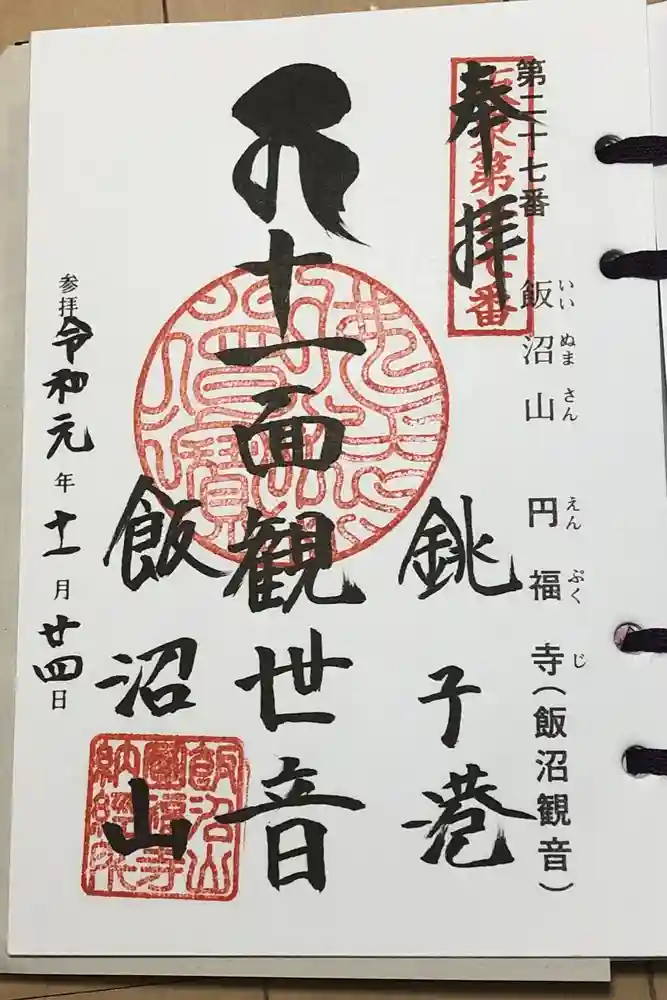 第二十七番 飯沼山 円福寺(飯沼観音)
いい ぬま さん えん ぷく じ
奉拝
銚子港
十一面観世音
飯沼山
参拝 令和元年十一月廿四日
飯沼山
圓福寺